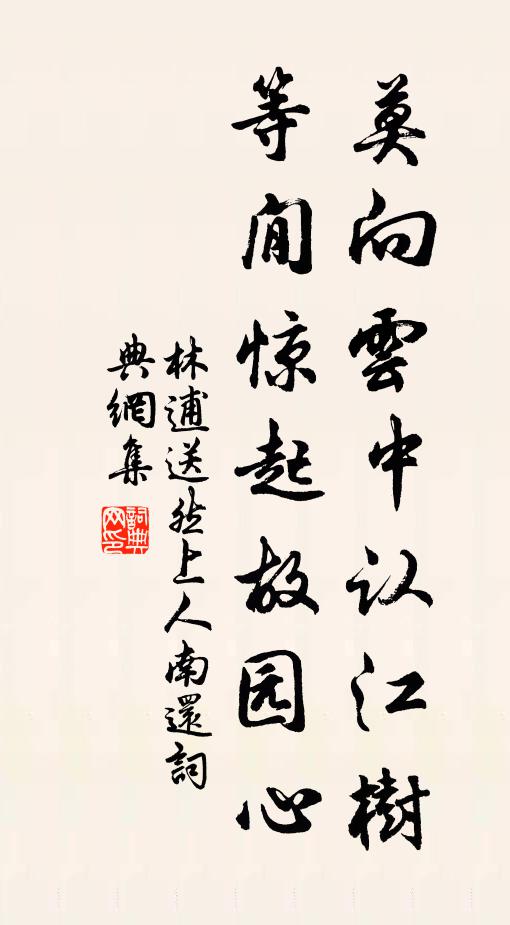 莫向雲中认江樹
等闲惊起故园心
林逋送然上人南還詞
典網集
詞典
网印